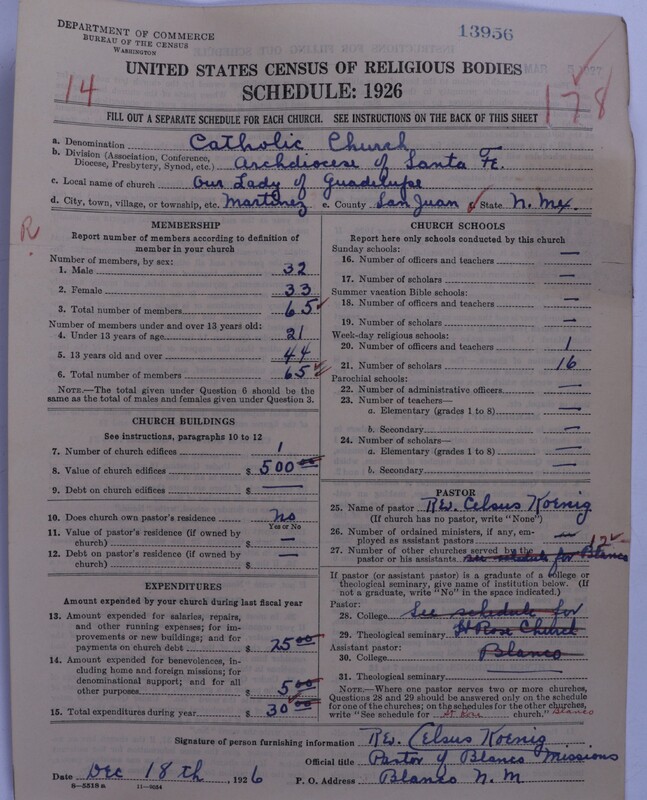 DEPARTMENT OF COMMERCE
BUREAU OF THE CENSUS
WASHINGTON
13956
UNITED STATES CENSUS OF RELIGIOUS BODIES
SCHEDULE: 1926
14
178
FILL OUT A SEPARATE SCHEDULE FOR EACH CHURCH. SEE INSTRUCTIONS ON THE BACK OF THIS SHEET
a. Denomination Catholic Church
b. Division (Association, Conference, Diocese, Presbytery, Synod, etc.) Archdiocese of Santa Fe.
c. Local name of church Our Lady of Guadelupe
d. City, town, village, or township, etc. Martinez e. County San Juan State N. Mex.
R
MEMBERSHIP
Report number of members according to definition of
member in your church
Number of members, by sex:
1. Male 32
2. Female 33
3. Total number of members 65
Number of members under and over 13 years old:
4. Under 13 years of age 21
5. 13 years old and over 44
6. Total number of members 65
NOTE.—The total given under Question 6 should be
same as the total of males and females given under Question 3.
CHURCH BUILDINGS
See instructions, paragraphs 10 to 12
7. Number of church edifices 1
8. Value of church edifices $ 500 00
9. Debt on church edifices $ —
10. Does church own pastor's residence No
Yes or No
11. Value of pastor's residence (if owned by
church) $ —
12. Debt on pastor's residence (if owned by
church) $ —
EXPENDITURES
Amount expended by your church during last fiscal year
13. Amount expended for salaries, repairs,
and other running expenses; for im-
provements or new buildings; and for
payments on church debt $ 25 00
14. Amount expended for benevolences, in-
cluding home and foreign missions; for
denominational support; and for all
other purposes $ 5 00
15. Total expenditures during year $ 30 00
CHURCH SCHOOLS
Report here only schools conducted by this church
Sunday schools:
16. Number of officers and teachers —
17. Number of scholars —
Summer vacation Bible schools:
18. Number of officers and teachers —
19. Number of scholars —
Week-day religious schools:
20. Number of officers and teachers 1
21. Number of scholars 16
Parochial schools:
22. Number of administrative officers —
23. Number of teachers—
a. Elementary (grades 1 to 8) —
b. Secondary —
24. Number of scholars—
a. Elementary (grades 1 to 8) —
b. Secondary —
PASTOR
25. Name of pastor Rev. Celsus Koenig
(If church has no pastor, write "None")
26. Number of ordained ministers, if any, em-
ployed as assistant pastors —
27. Number of other churches served by the 12
pastor or his assistants see schedule for Blanco
If pastor (or assistant pastor) is a graduate of a college or
theological seminary, give name of institution below. (If
not a graduate, write "No" in the space indicated.)
Pastor:
28. College See schedule for
29. Theological seminary St Rose Church
Assistant pastor:
30. College Blanco
31. Theological seminary
NOTE.—Where one pastor serves two or more churches,
Questions 28 and 29 should be answered only on the schedule
for one of the churches; on the schedules for the other churches,
write "See schedule for St Rose church." Blanco
Signature of person furnishing information Rev. Celsus Koenig
Official title Pastor of Blanco Missions
Date Dec 18th, 1926 P. O. Address Blanco N. M
8—5518a 11—9084